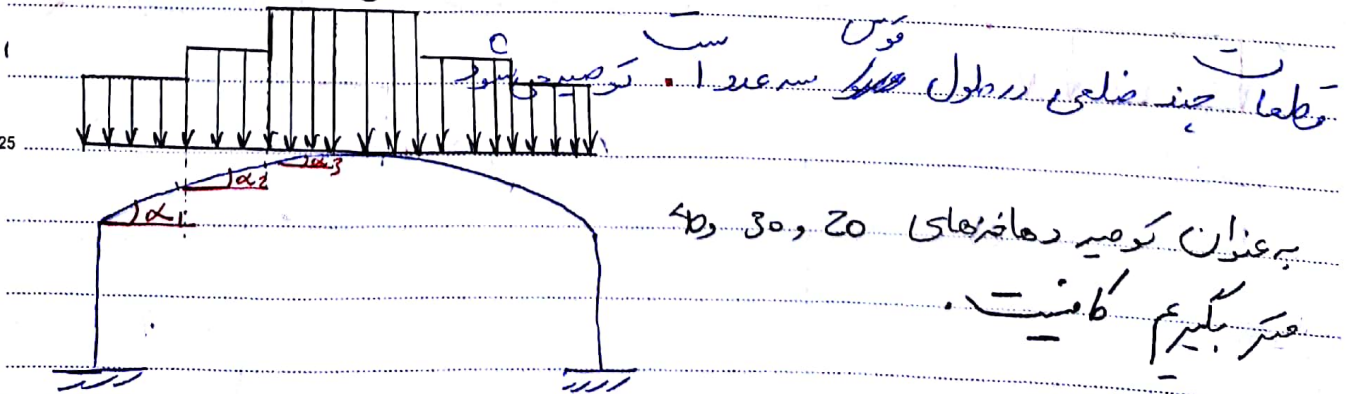 قطعات چند ضلعی در طول قوس سه عدد است. توصیه می‌شود
به عنوان توصیه دهانه‌های 20 و 30 و 40
متر بگیریم کافیست.
25
α1
α2
α3
C